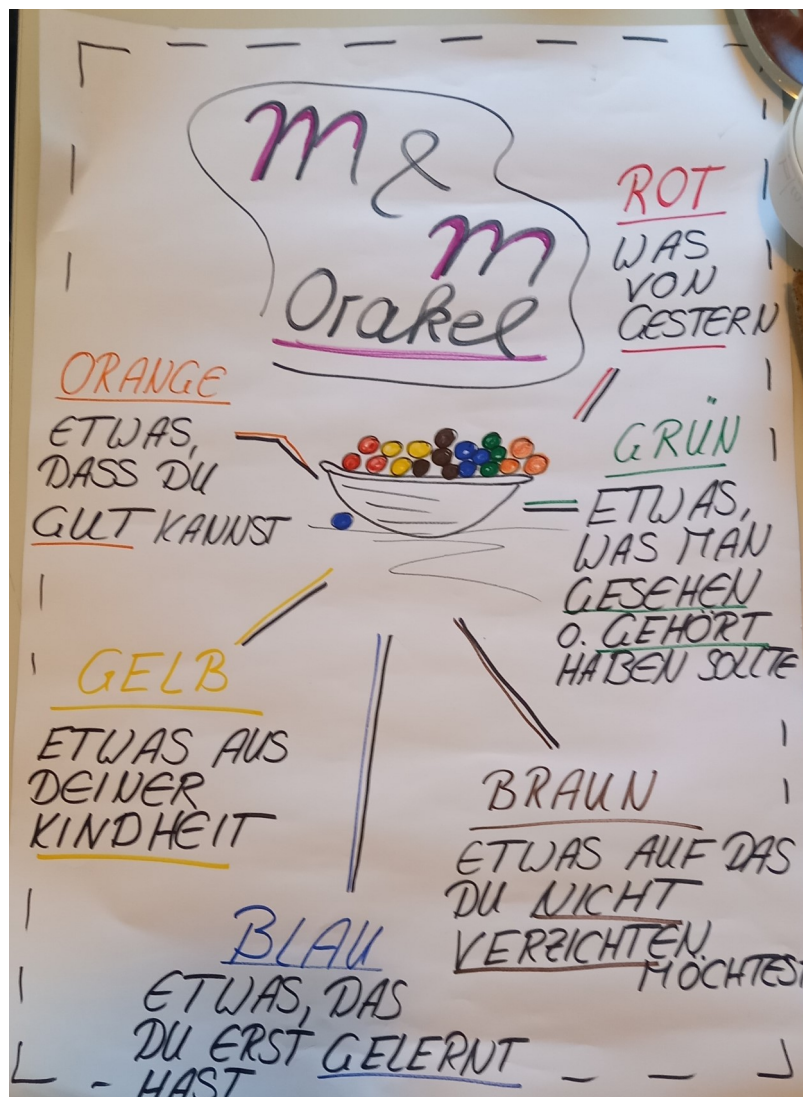 m &
m
Orakel
ROT
WAS
VON
GESTERN
ORANGE
ETWAS,
DASS DU
GUT KANNST
GRÜN
ETWAS,
WAS MAN
GESEHEN
O. GEHÖRT
HABEN SOLLTE
GELB
ETWAS AUS
DEINER
KINDHEIT
BRAUN
ETWAS AUF DAS
DU NICHT
VERZICHTEN
MÖCHTEST
BLAU
ETWAS, DAS
DU ERST GELERNT
HAST